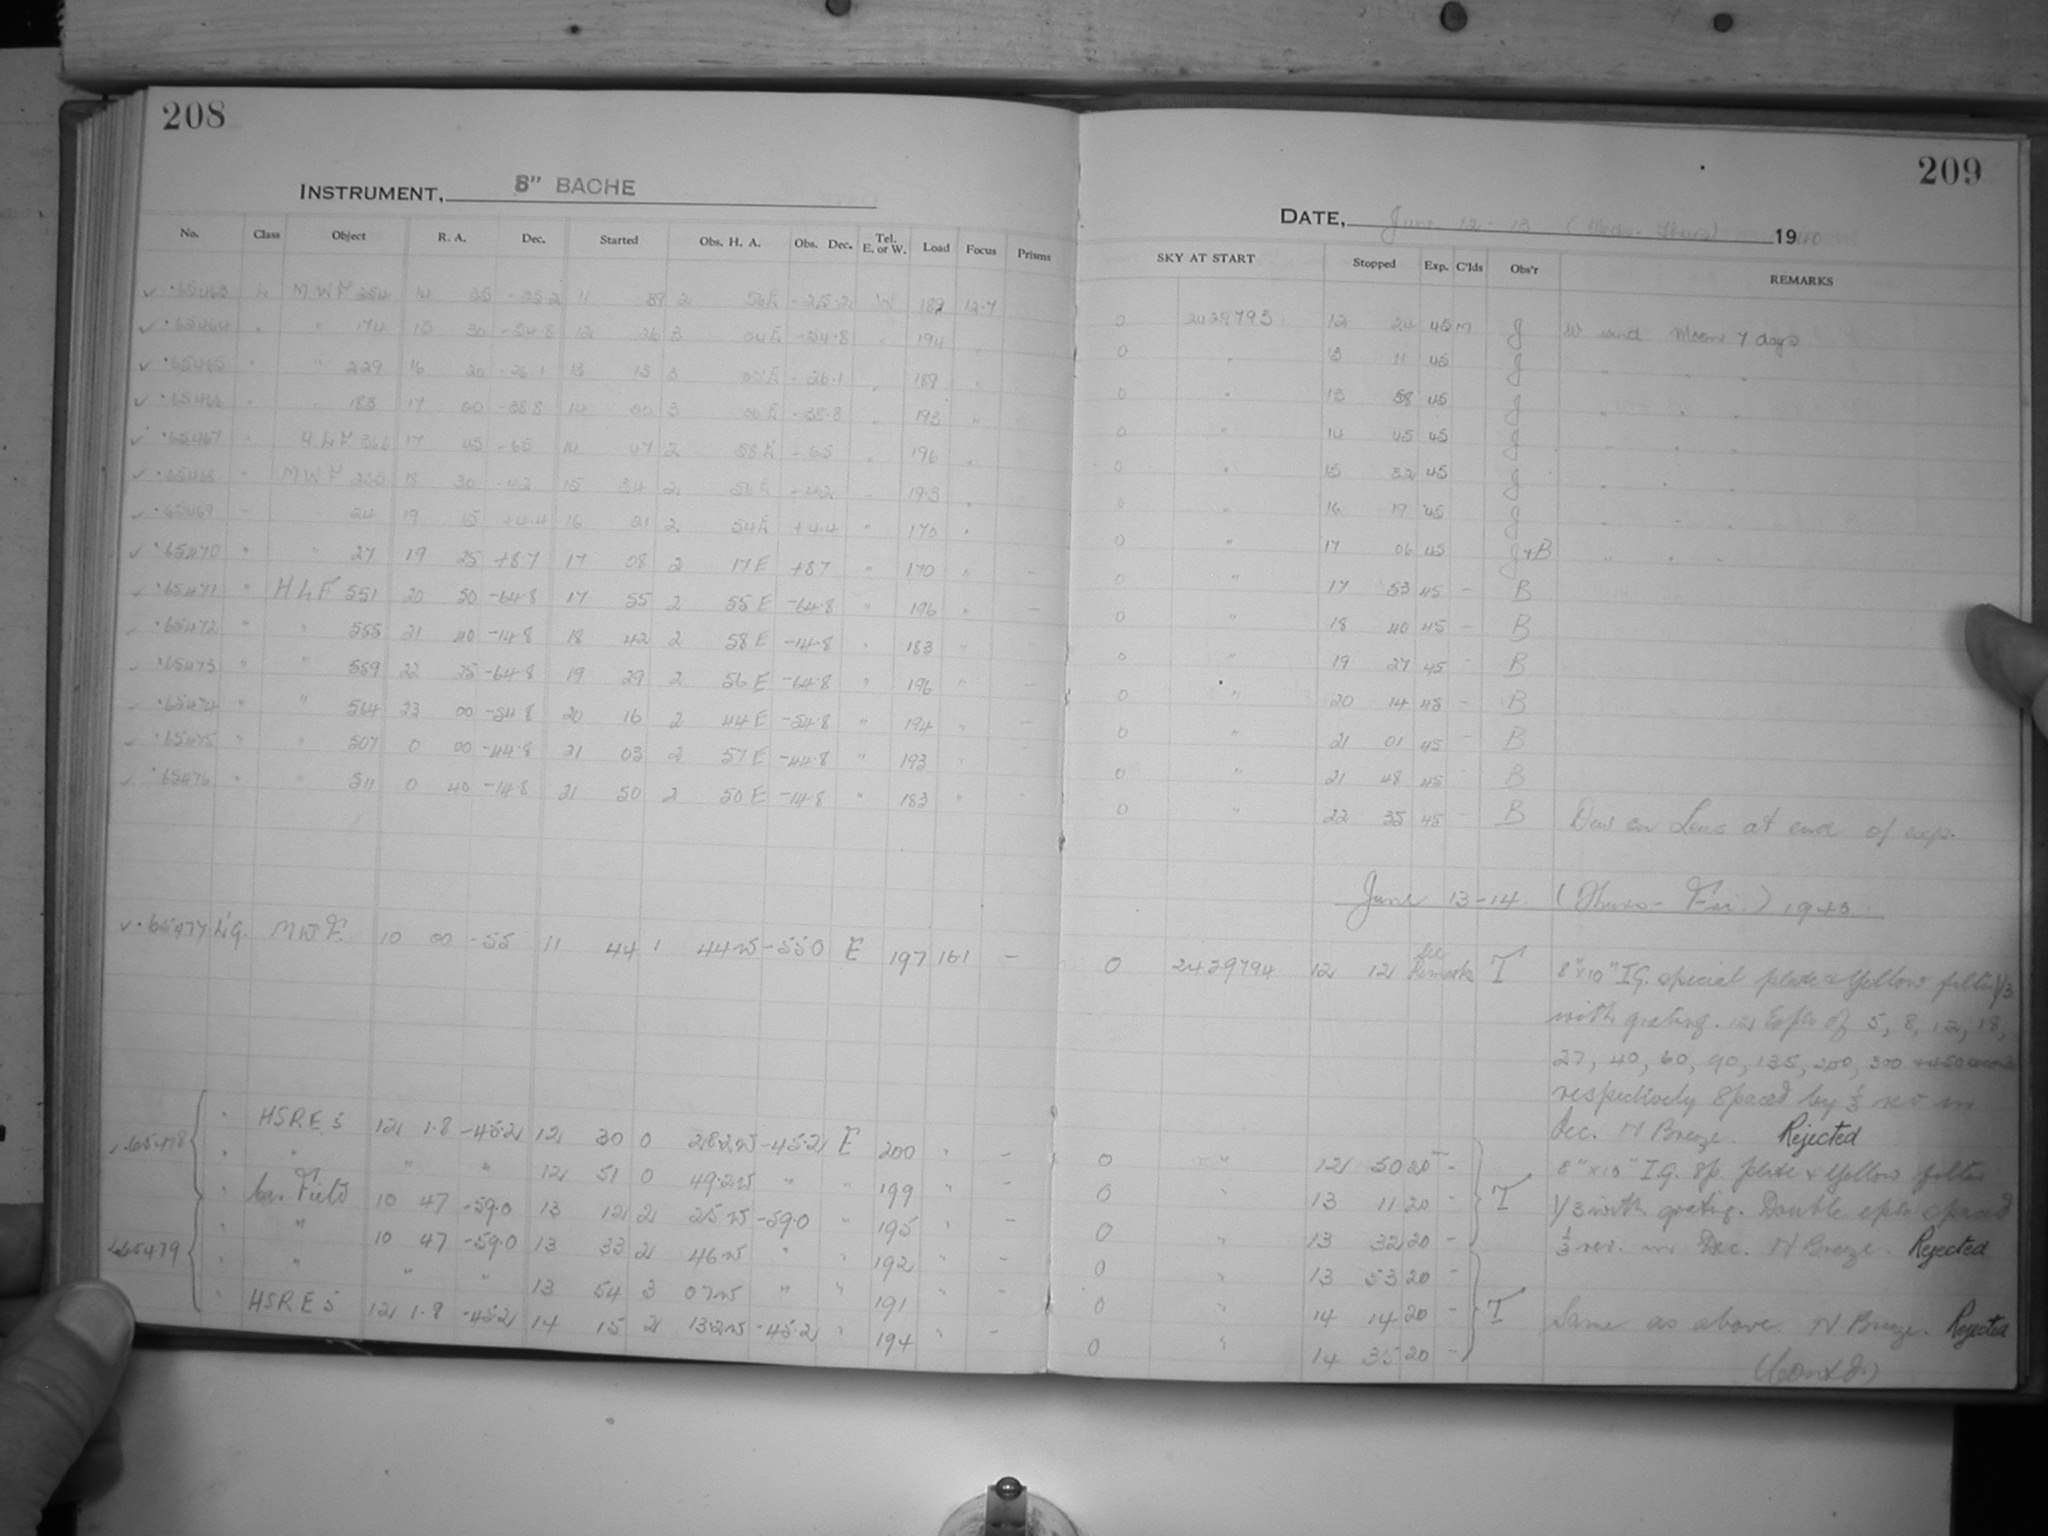 208
INSTRUMENT, 8" BACHE
No. Class Object R. A. Dec. Started Obs. H. A. Obs. Dec. Tel. E. or W. Load Focus Prisms
65463 L MWF 254 14 35 -25.2 11 39 2 56E -25.2 W 189 12.7
65464 " " 174 15 30 -54.8 12 26 3 04E -54.8 " 194 "
65465 " " 229 16 20 -26.1 13 13 3 07E -26.1 " 189 "
65466 " " 183 17 00 -38.8 14 00 3 00E -38.8 " 193 "
65467 " HLF 366 17 45 -65 14 47 2 58E -65 " 196 "
65468 " MWF 235 18 30 -42 15 34 2 56E -42 " 193 "
65469 " " 24 19 15 +4.4 16 21 2 54E +4.4 " 170 "
65470 " " 27 19 25 +8.7 17 08 2 17E +8.7 " 170 " -
65471 " HLF 551 20 50 -64.8 17 55 2 55E -64.8 " 196 " -
65472 " " 555 21 40 -14.8 18 42 2 58E -14.8 " 183 " -
65473 " " 559 22 25 -64.8 19 29 2 56E -64.8 " 196 " -
65474 " " 564 23 00 -54.8 20 16 2 44E -54.8 " 194 " -
65475 " " 507 0 00 -44.8 21 03 2 57E -44.8 " 193 " -
65476 " " 511 0 40 -14.8 21 50 2 50E -14.8 " 183 " -
65477 I.G. MWF 10 00 -55 11 44 1 44W -55.0 E 197 161 -
65478 " HSRE5 12 1.8 -45.2 12 30 0 28.2W -45.2 E 200 " -
" " " " 12 51 0 49.2W " " 199 " -
" Car. Field 10 47 -59.0 13 12 2 25W -59.0 " 195 " -
65479 " " 10 47 -59.0 13 33 2 46W " " 192 " -
" " " " 13 54 3 07W " " 191 " -
" HSRE5 12 1.8 -45.2 14 15 2 13.2W -45.2 " 194 " -
209
DATE, June 12-13 (Weds-Thurs) 1940
SKY AT START Stopped Exp. C'lds Obs'r REMARKS
0 2429793 12 24 45M J W wind Moon 7 days
0 " 13 11 45 J " " "
0 " 13 58 45 J " " "
0 " 14 45 45 J " " "
0 " 15 32 45 J " " "
0 " 16 19 45 J " " "
0 " 17 06 45 J+B " " "
0 " 17 53 45 - B
0 " 18 40 45 - B
0 " 19 27 45 - B
0 " 20 14 45 - B
0 " 21 01 45 - B
0 " 21 48 45 - B
0 " 22 35 45 - B Dew on Lens at end of exp.
June 13-14 (Thurs-Fri.) 1940
0 2429794 12 12 See Remarks T 8"x10" I.G. special plate & Yellow filter 1/3
with grating. 12 Exps of 5, 8, 12, 18,
27, 40, 60, 90, 135, 200, 300 & 450 secs
respectively spaced by 1/3 rev in
Dec. N Breeze. Rejected
0 " 12 50 20 - 8"x10" I.G. sp. plate & Yellow filter
0 " 13 11 20 - T 1/3 with grating. Double exps spaced
0 " 13 32 20 - 1/3 rev. in Dec. N Breeze. Rejected
0 " 13 53 20 -
0 " 14 14 20 - T Same as above. N Breeze. Rejected
0 " 14 35 20 - (Contd.)